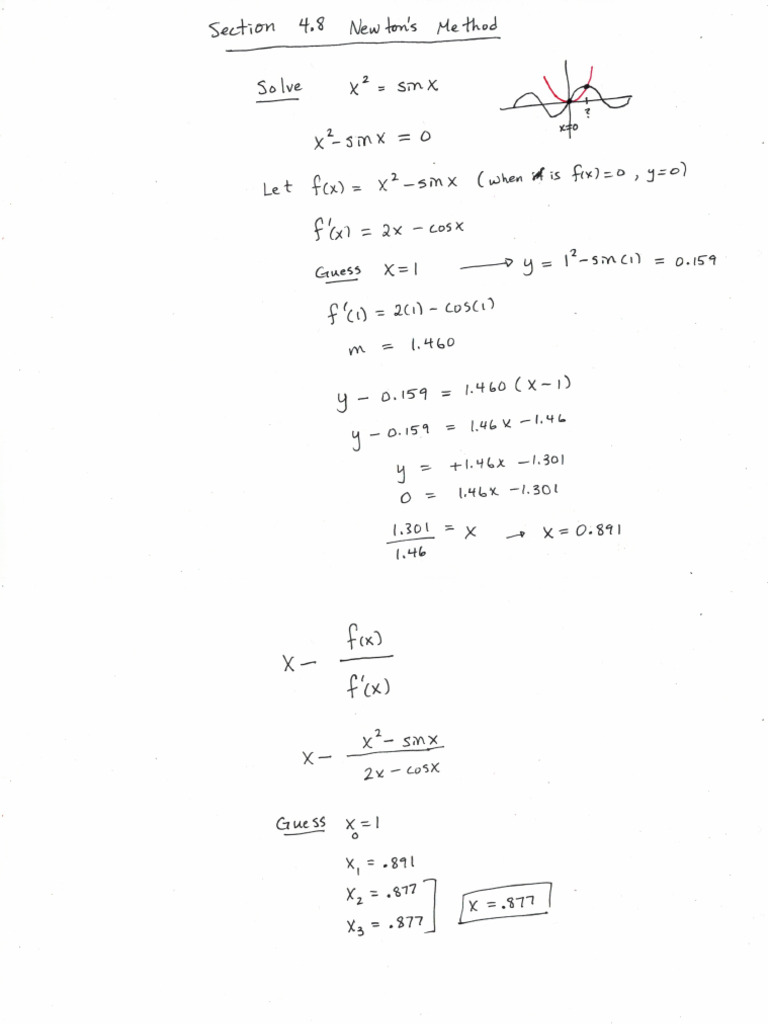 Section 4.8 Newton's Method
Solve x² = sin x
x=0
?
x² - sin x = 0
Let f(x) = x² - sin x (when is f(x)=0, y=0)
f'(x) = 2x - cos x
Guess x=1 → y = 1² - sin(1) = 0.159
f'(1) = 2(1) - cos(1)
m = 1.460
y - 0.159 = 1.460 (x-1)
y - 0.159 = 1.46x - 1.46
y = +1.46x - 1.301
0 = 1.46x - 1.301
1.301/1.46 = x → x = 0.891
x - f(x)/f'(x)
x - (x² - sin x)/(2x - cos x)
Guess x₀ = 1
x₁ = .891
x₂ = .877
x₃ = .877
x = .877